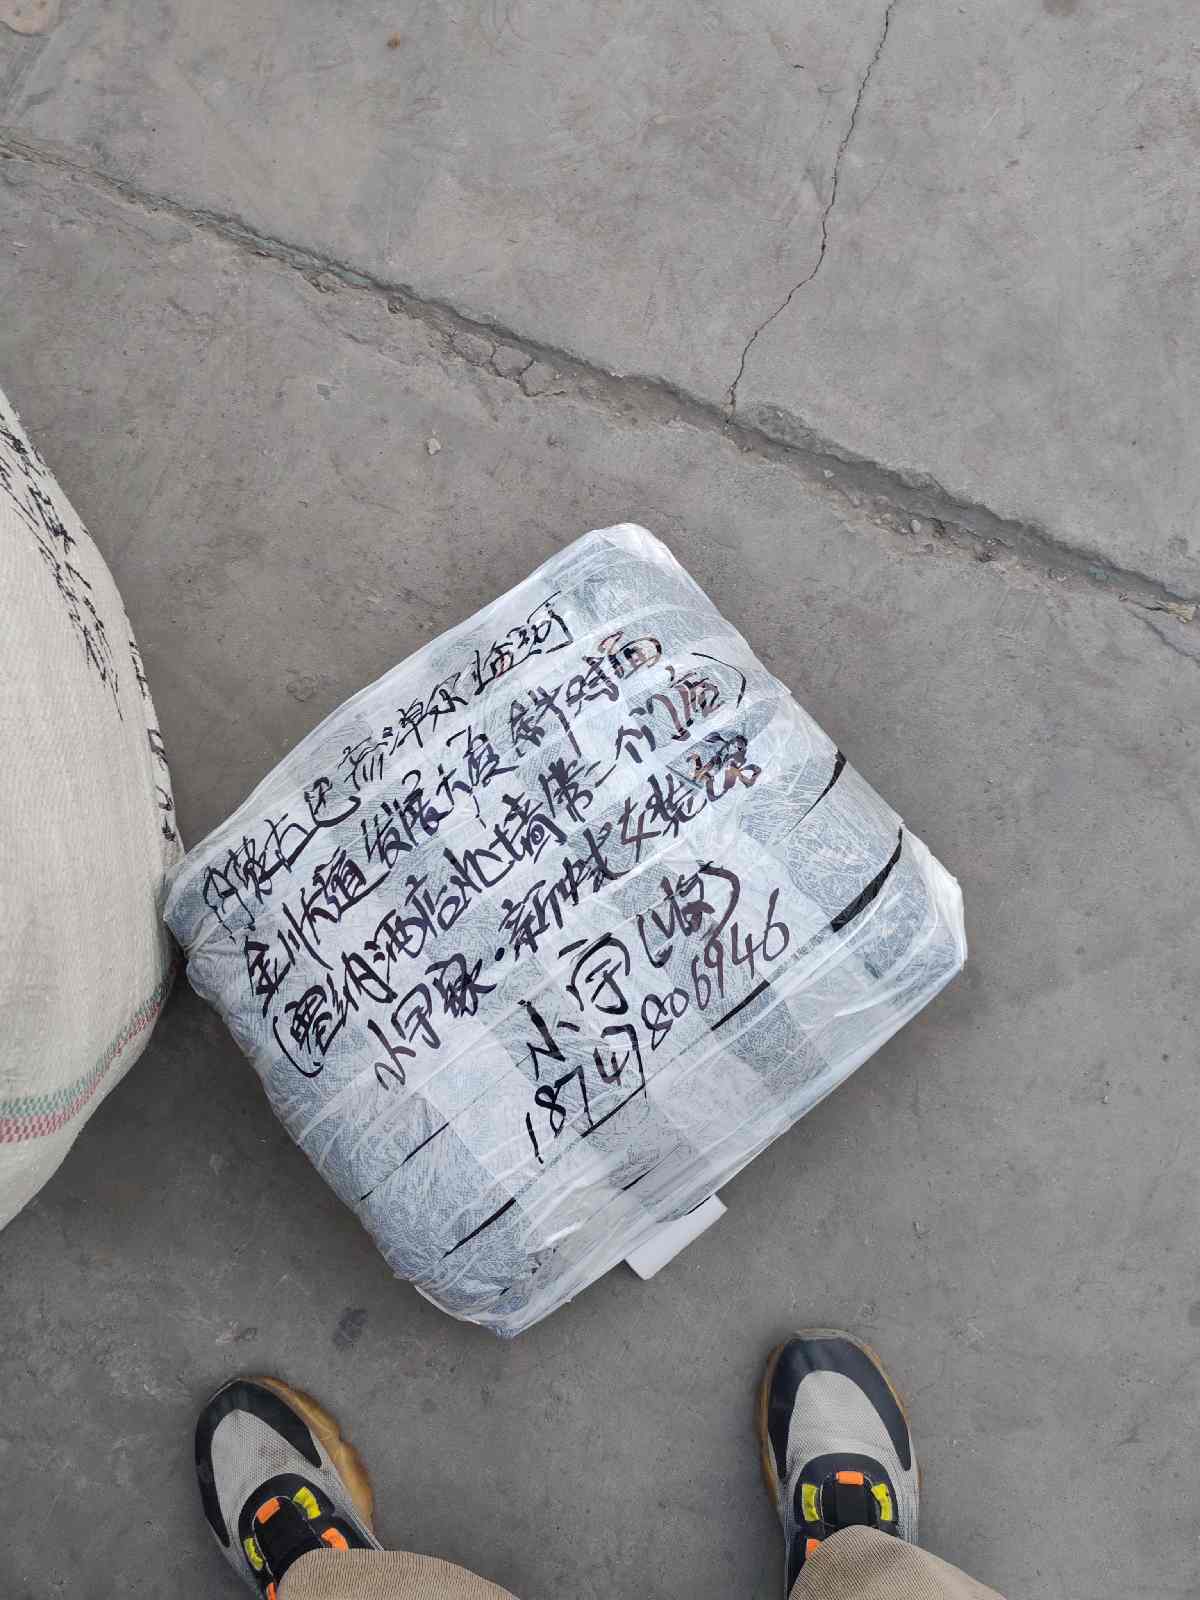 内蒙古巴彦淖尔临河
金川大道发展大厦斜对面
(维纳酒店北墙第一个门店)
小宇家·新中式女装馆
小宇(收)
18747806946